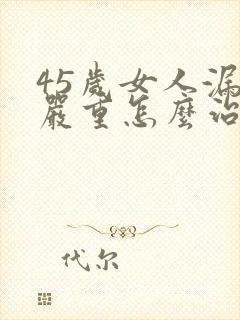 45歲女人漏
嚴重怎麼治
代尔